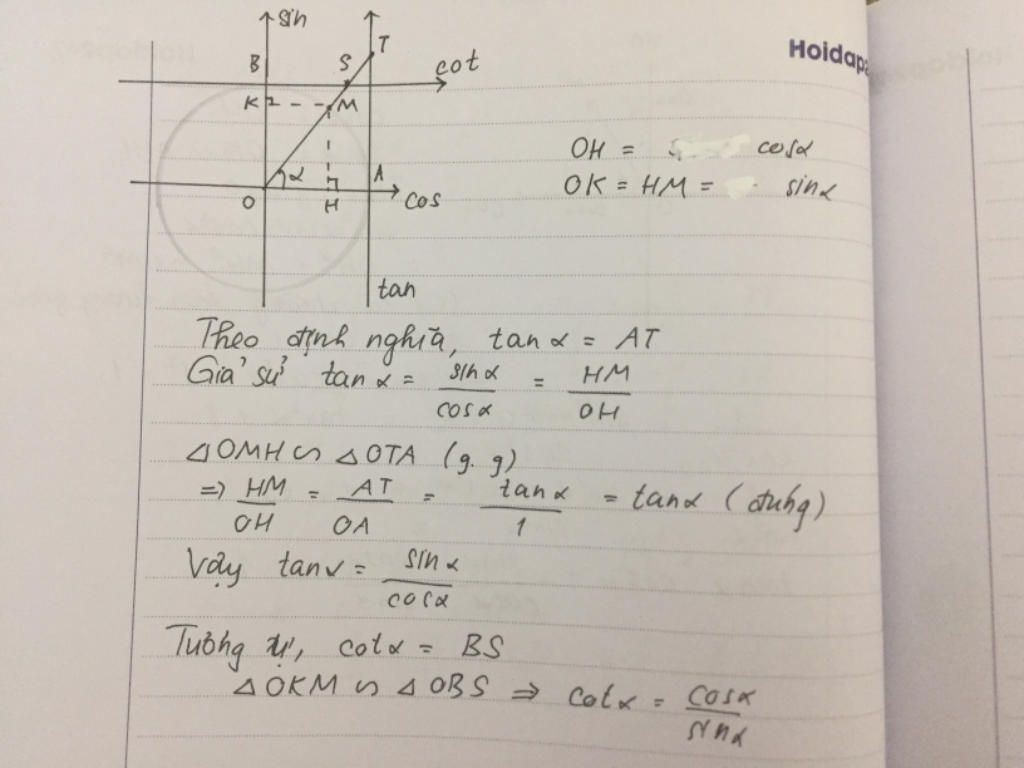 sin
T
B S cot
K M
α A
O H cos
tan
Hoidap
OH = cosα
OK = HM = sinα
Theo định nghĩa, tan α = AT
Giả sử tan α = sinα / cosα = HM / OH
△OMH ∽ △OTA (g. g)
=> HM / OH = AT / OA = tanα / 1 = tanα (đúng)
Vậy tanα = sinα / cosα
Tương tự, cotα = BS
△OKM ∽ △OBS => cotα = cosα / sinα